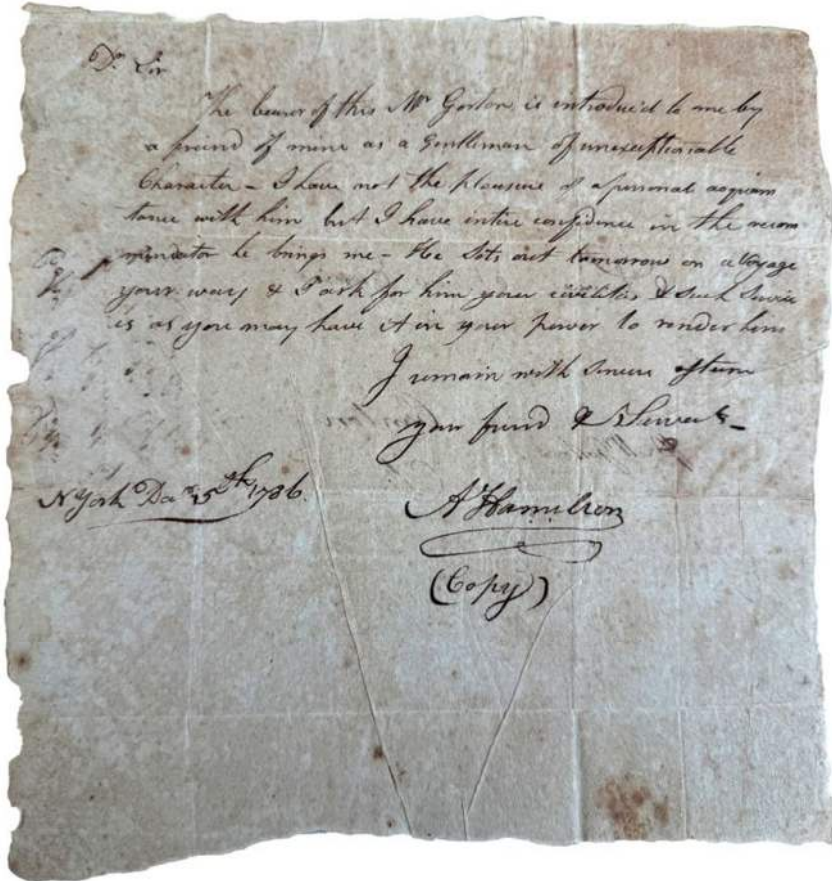 Dr Sir
The bearer of this Mr Gorton is introduc'd to me by
a friend of mine as a Gentleman of unexceptionable
Character – I have not the pleasure of a personal acquain
tance with him but I have intire confidence in the recom
mendator he brings me – He Sets out tomorrow on a Voyage
your way & I ask for him your civilities & such Servic
is as you may have it in your power to render him
I remain with Sincere esteem
your friend & Servt –
N York Decr 5th 1786.
A Hamilton
(Copy)